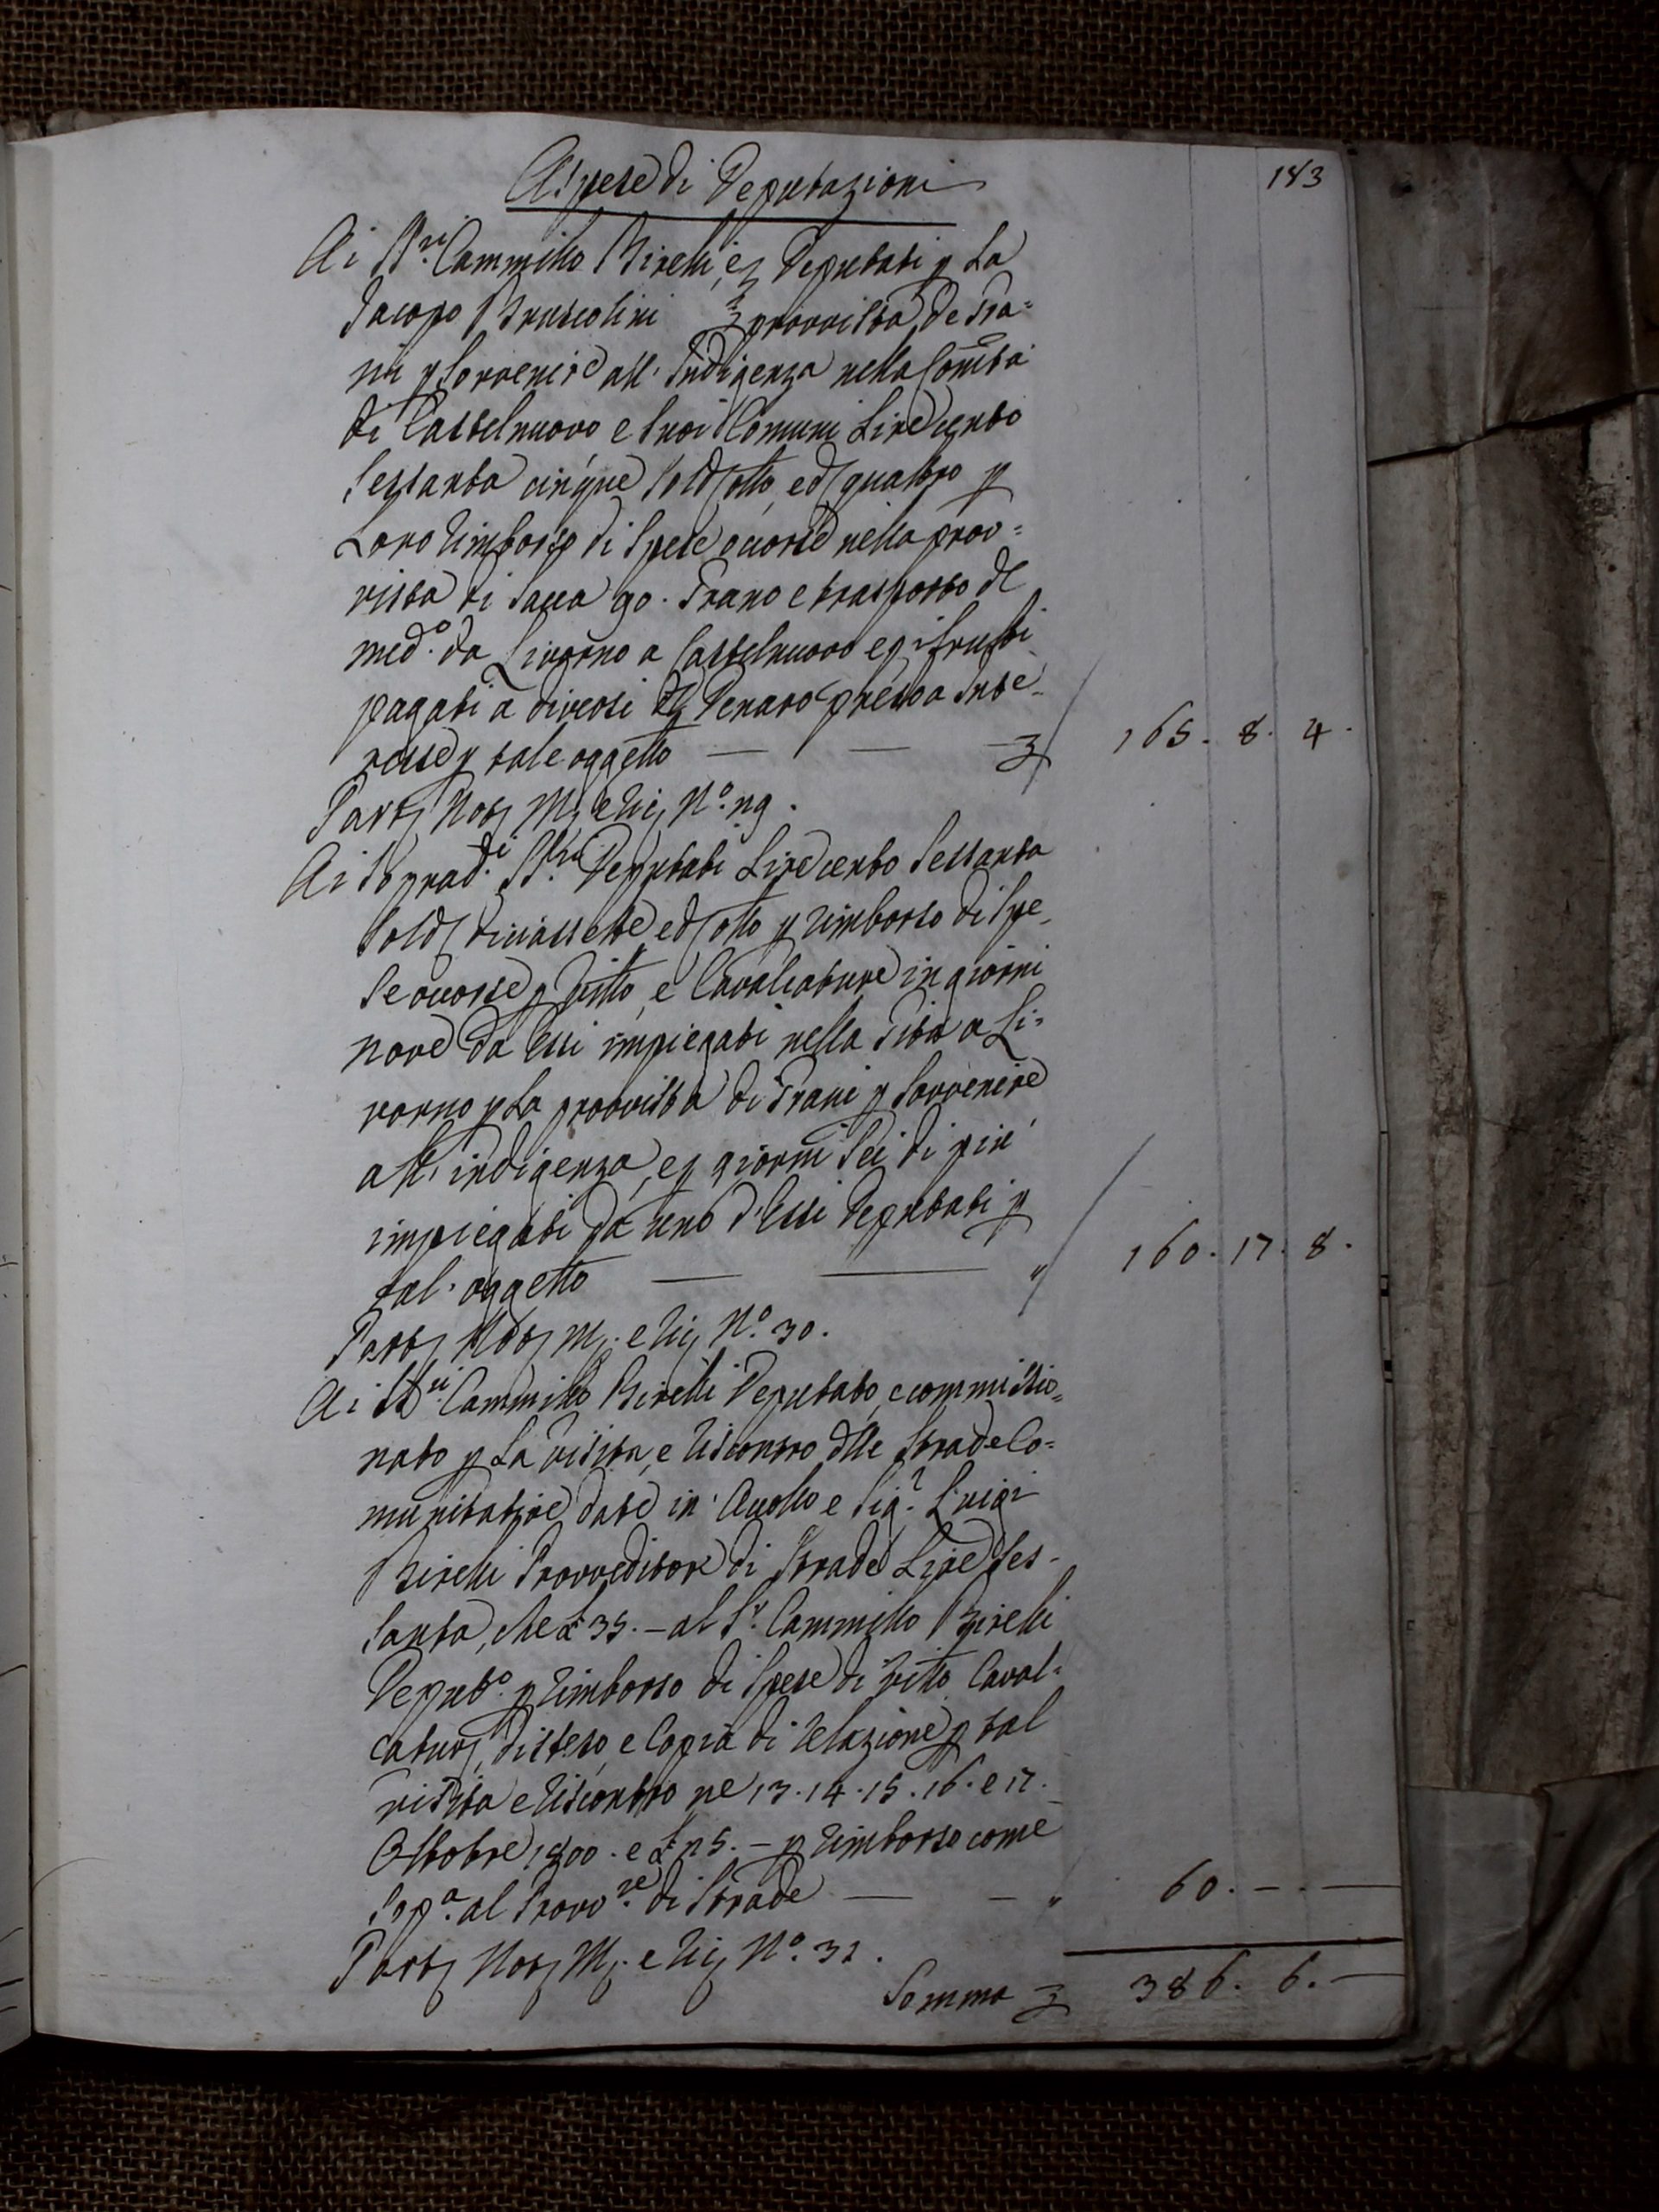 183
A Spese di Deputazioni
Ai SS.ri Cammillo Birelli, e Deputati p la
Jacopo Bruscolini provvista de Gra=
ni p sovvenire all'Indigenza nella Comtà
di Castelnuovo e suoi Comuni Lire cento
sessanta cinque sold otto, e d quattro p
Loro rimborso di spese occorse nella prov=
vista di sacca 90. Grano e trasporto de
med.o da Livorno a Castelnuovo e p i frutti
pagati a diversi Denaro preso a Inte=
resse p tale oggetto — — 165. 8. 4.
Part Not M. e Ric N.o 29.
Ai Soprad.ti SS.ri Deputati Lire cento sessanta
sold diciassette e d otto p rimborso di spe=
se occorse p Vitto, e Cavalcature in giorni
nove da Essi impiegati nella Gita a Li=
vorno p la provvista di Grani p sovvenire
all'indigenza, e p giorni Sei di più
impiegati da uno d'Essi Deputati p
tal'oggetto — — " 160. 17. 8.
Part Not M. e Ric N.o 30.
Ai SS.ri Cammillo Birelli Deputato, e commissio=
nato p la visita, e riscontro dlle Strade Co=
munitative date in Accollo e Sig.r Luigi
Birelli Provveditore di Strade Lire ses=
santa, che £ 35. – al S.r Cammillo Birelli
Deput.o p rimborso di spese di vitto Caval=
catur, disteso, e Copia di relazione p tal
visita e riscontro ne 13. 14. 15. 16. e 17.
Ottobre 1800. e £ 25. – p rimborso come
sop.a al Provv.re di Strade — – " 60. – . —
Part Not M. e Ric N.o 31.
Somma 386. 6. —